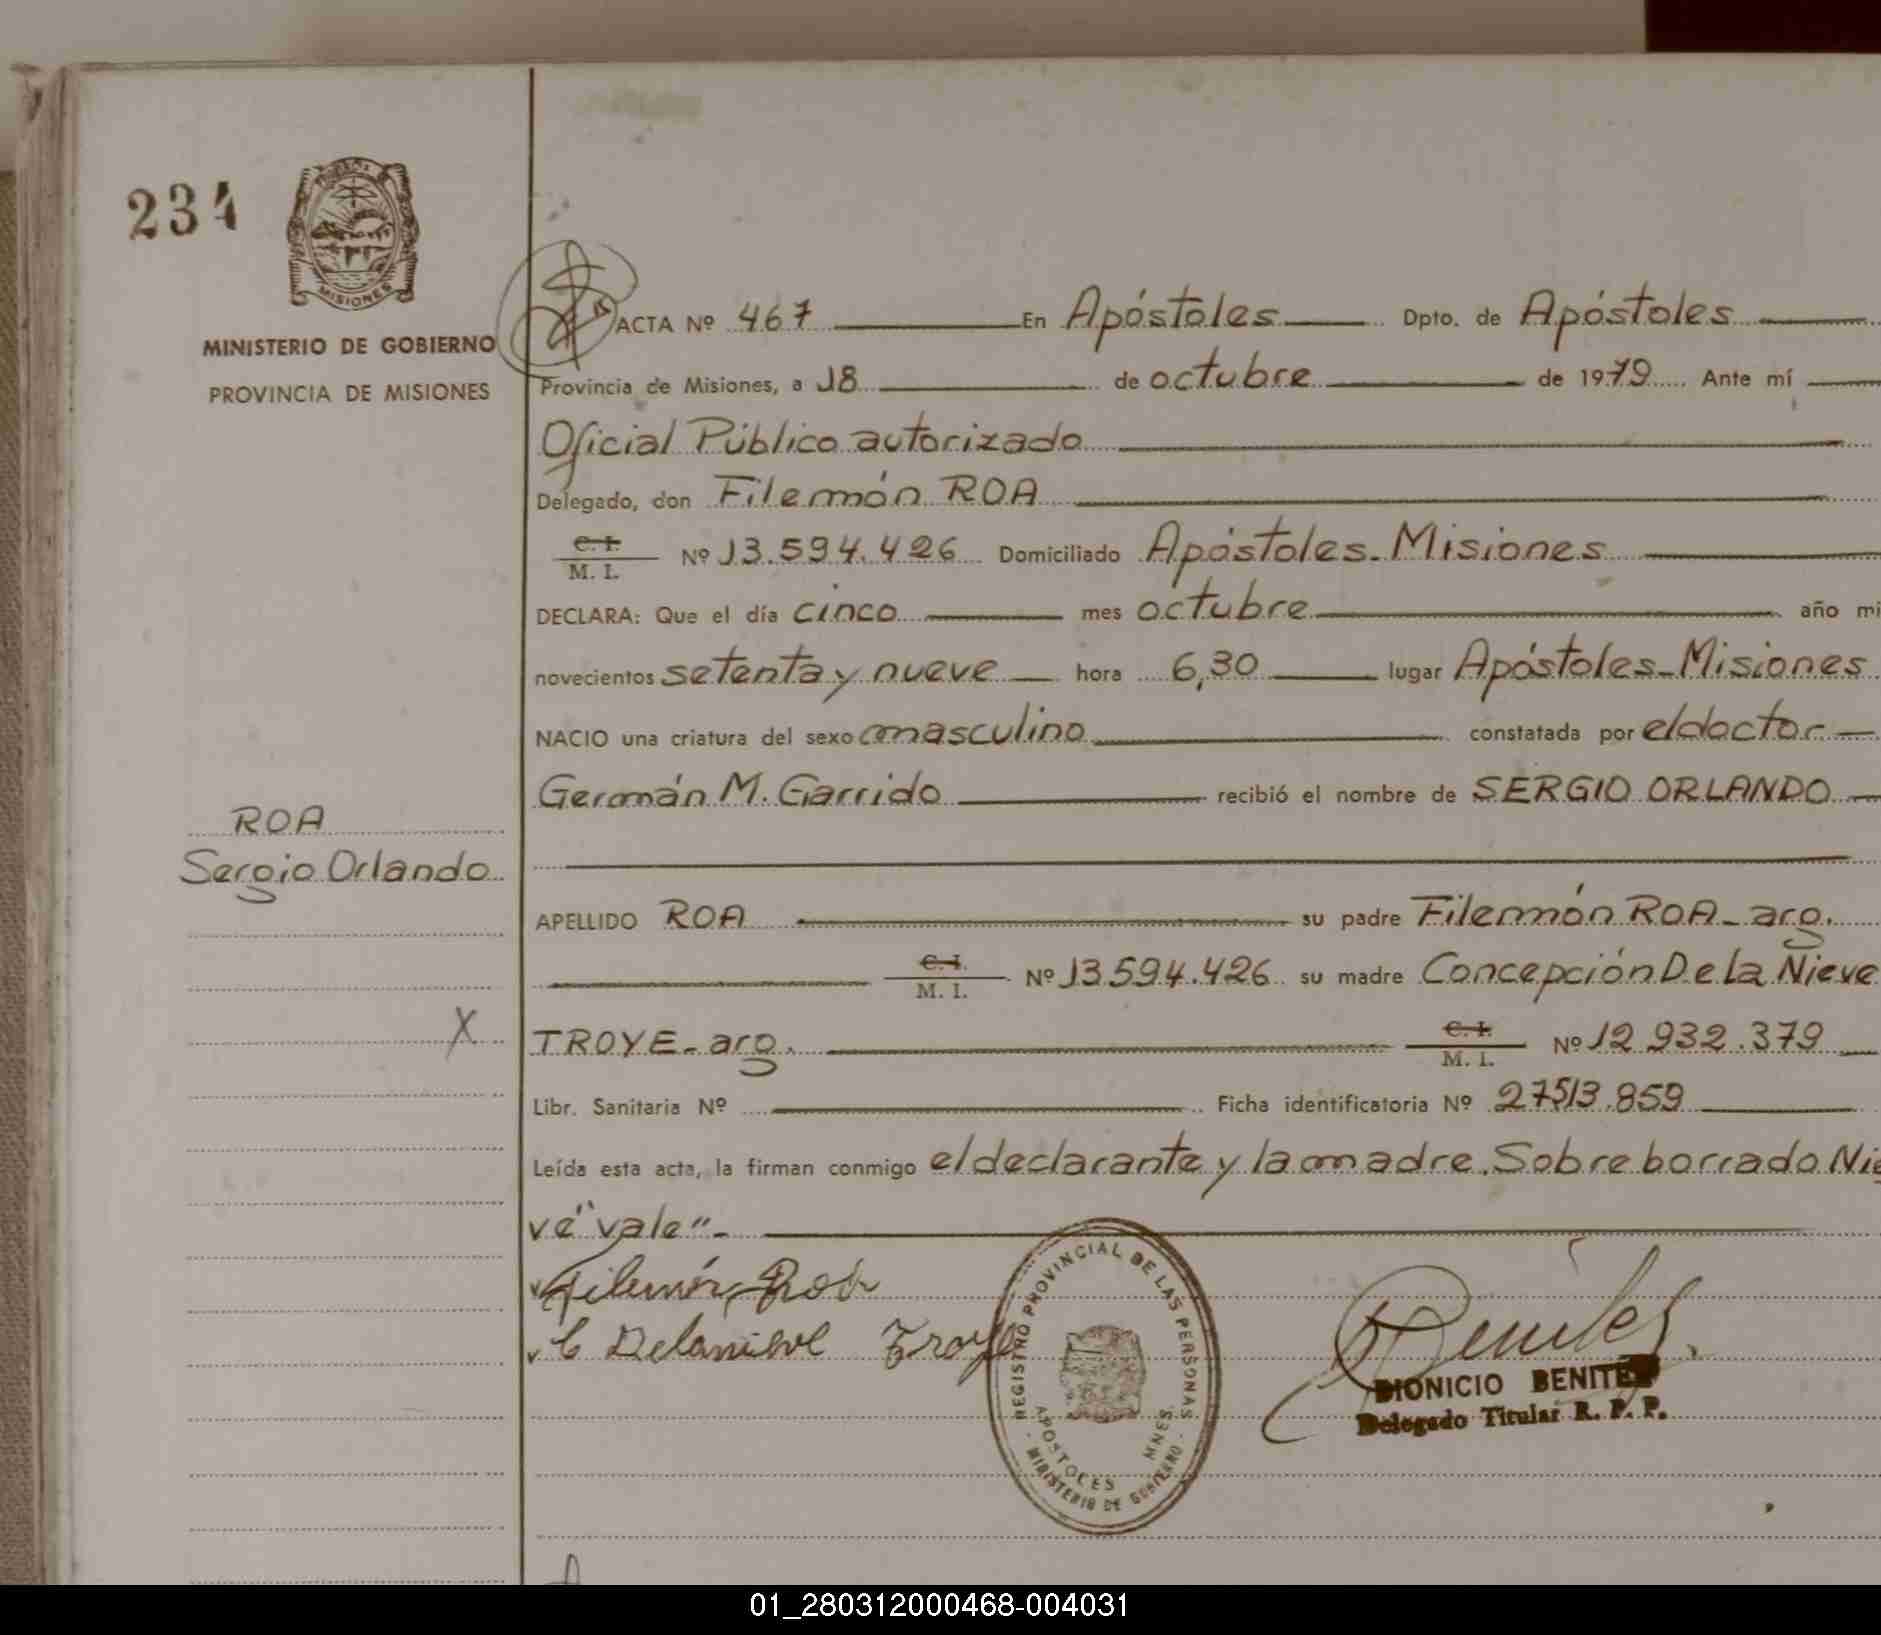 234
MISIONES
MINISTERIO DE GOBIERNO
PROVINCIA DE MISIONES
ACTA Nº 467 En Apóstoles Dpto. de Apóstoles
Provincia de Misiones, a 18 de octubre de 1979 Ante mí
Oficial Público autorizado
Delegado, don Filemón ROA
C. I.
M. I. Nº 13.594.426 Domiciliado Apóstoles-Misiones
DECLARA: Que el día cinco mes octubre año mi
novecientos setenta y nueve hora 6,30 lugar Apóstoles-Misiones
NACIO una criatura del sexo masculino constatada por el doctor
Germán M. Garrido recibió el nombre de SERGIO ORLANDO
ROA
Sergio Orlando
APELLIDO ROA su padre Filemón ROA-arg.
C. I.
M. I. Nº 13.594.426 su madre Concepción De la Nieve
X
TROYE-arg. C. I.
M. I. Nº 12.932.379
Libr. Sanitaria Nº Ficha identificatoria Nº 27513.859
Leída esta acta, la firman conmigo el declarante y la madre. Sobre borrado Nie
ve "vale".-
Filemón Roa
C Delanieve Troye
REGISTRO PROVINCIAL DE LAS PERSONAS
APOSTOLES MNES.
MINISTERIO DE GOBIERNO
Benitez
DIONICIO BENITEZ
Delegado Titular R. P. P.
01_280312000468-004031